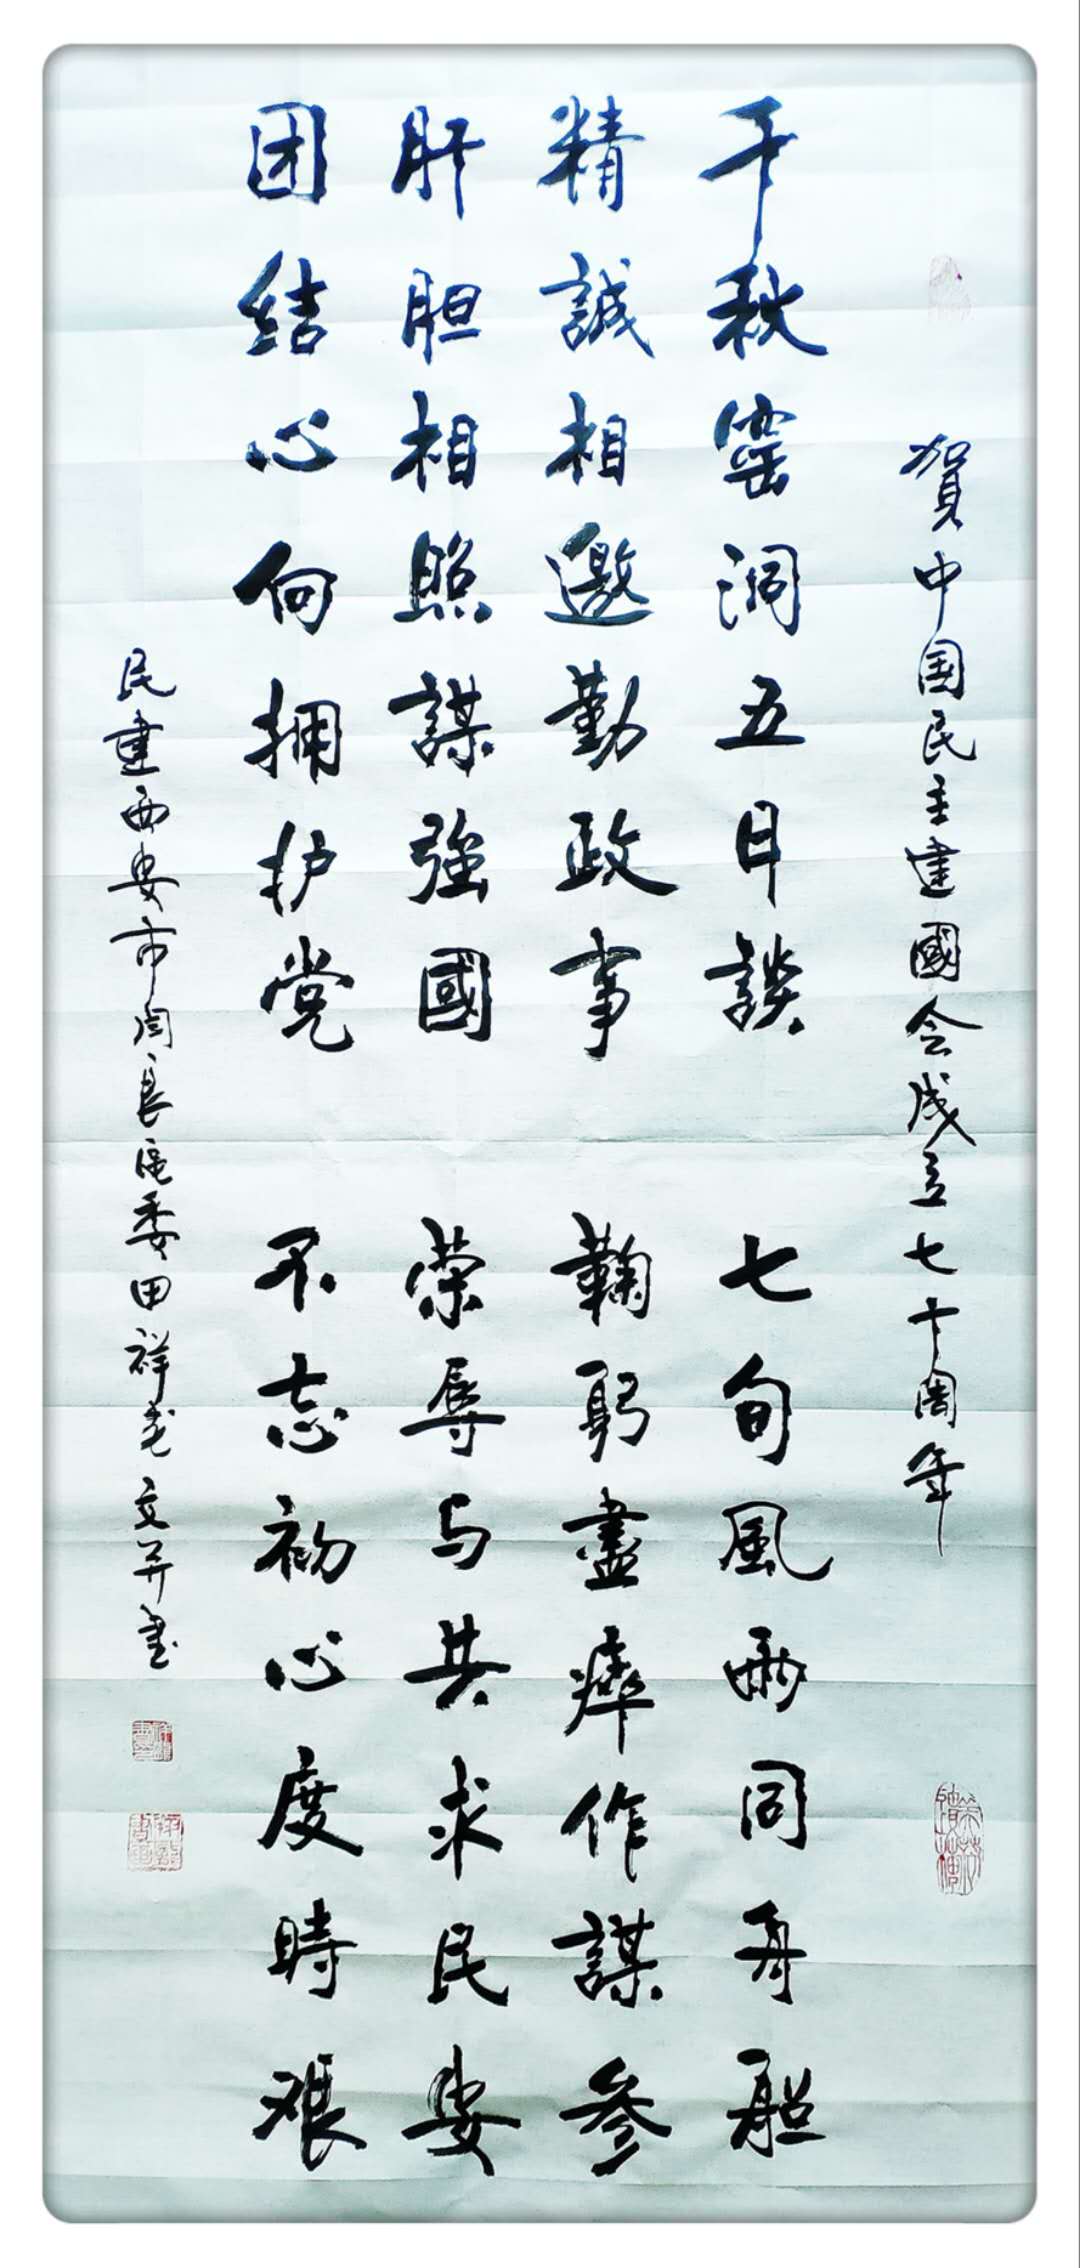 賀中国民主建國会成立七十周年
千秋窑洞五日談 七旬風雨同舟船
精誠相邀勤政事 鞠躬盡瘁作謀參
肝胆相照謀強國 荣辱与共求民安
团结心向拥护党 不忘初心度時艰
民建西安市闫良区委田祥 文并書